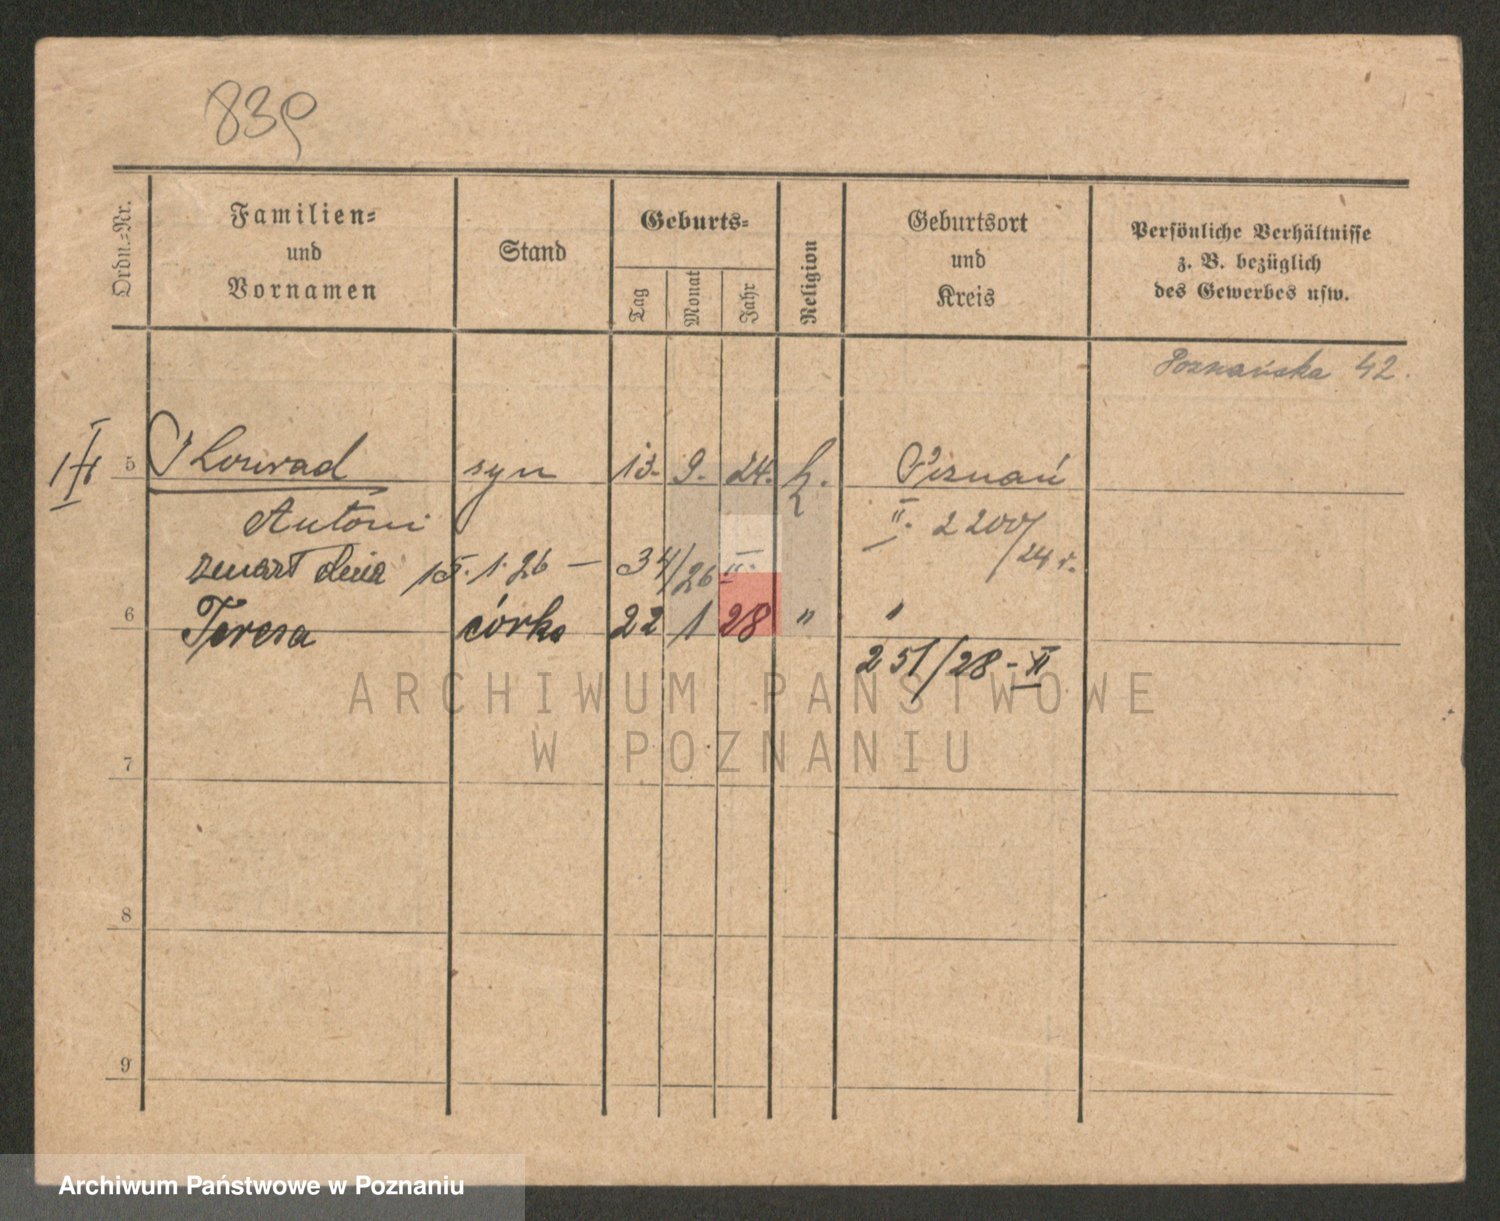 839
Ordn.-Nr.
Familien-
und
Vornamen
Stand
Geburts-
Tag
Monat
Jahr
Religion
Geburtsort
und
Kreis
Persönliche Verhältnisse
z. B. bezüglich
des Gewerbes usw.
Poznańska 42.
5 Konrad syn 13. 9. 24. k. Poznań
Antoni II. 2200/24 r.
zmarł dnia 15.1.26 – 34/26 II.
6 Teresa córka 22 1 28 " "
251/28 - II
ARCHIWUM PAŃSTWOWE
W POZNANIU
7
8
9
Archiwum Państwowe w Poznaniu